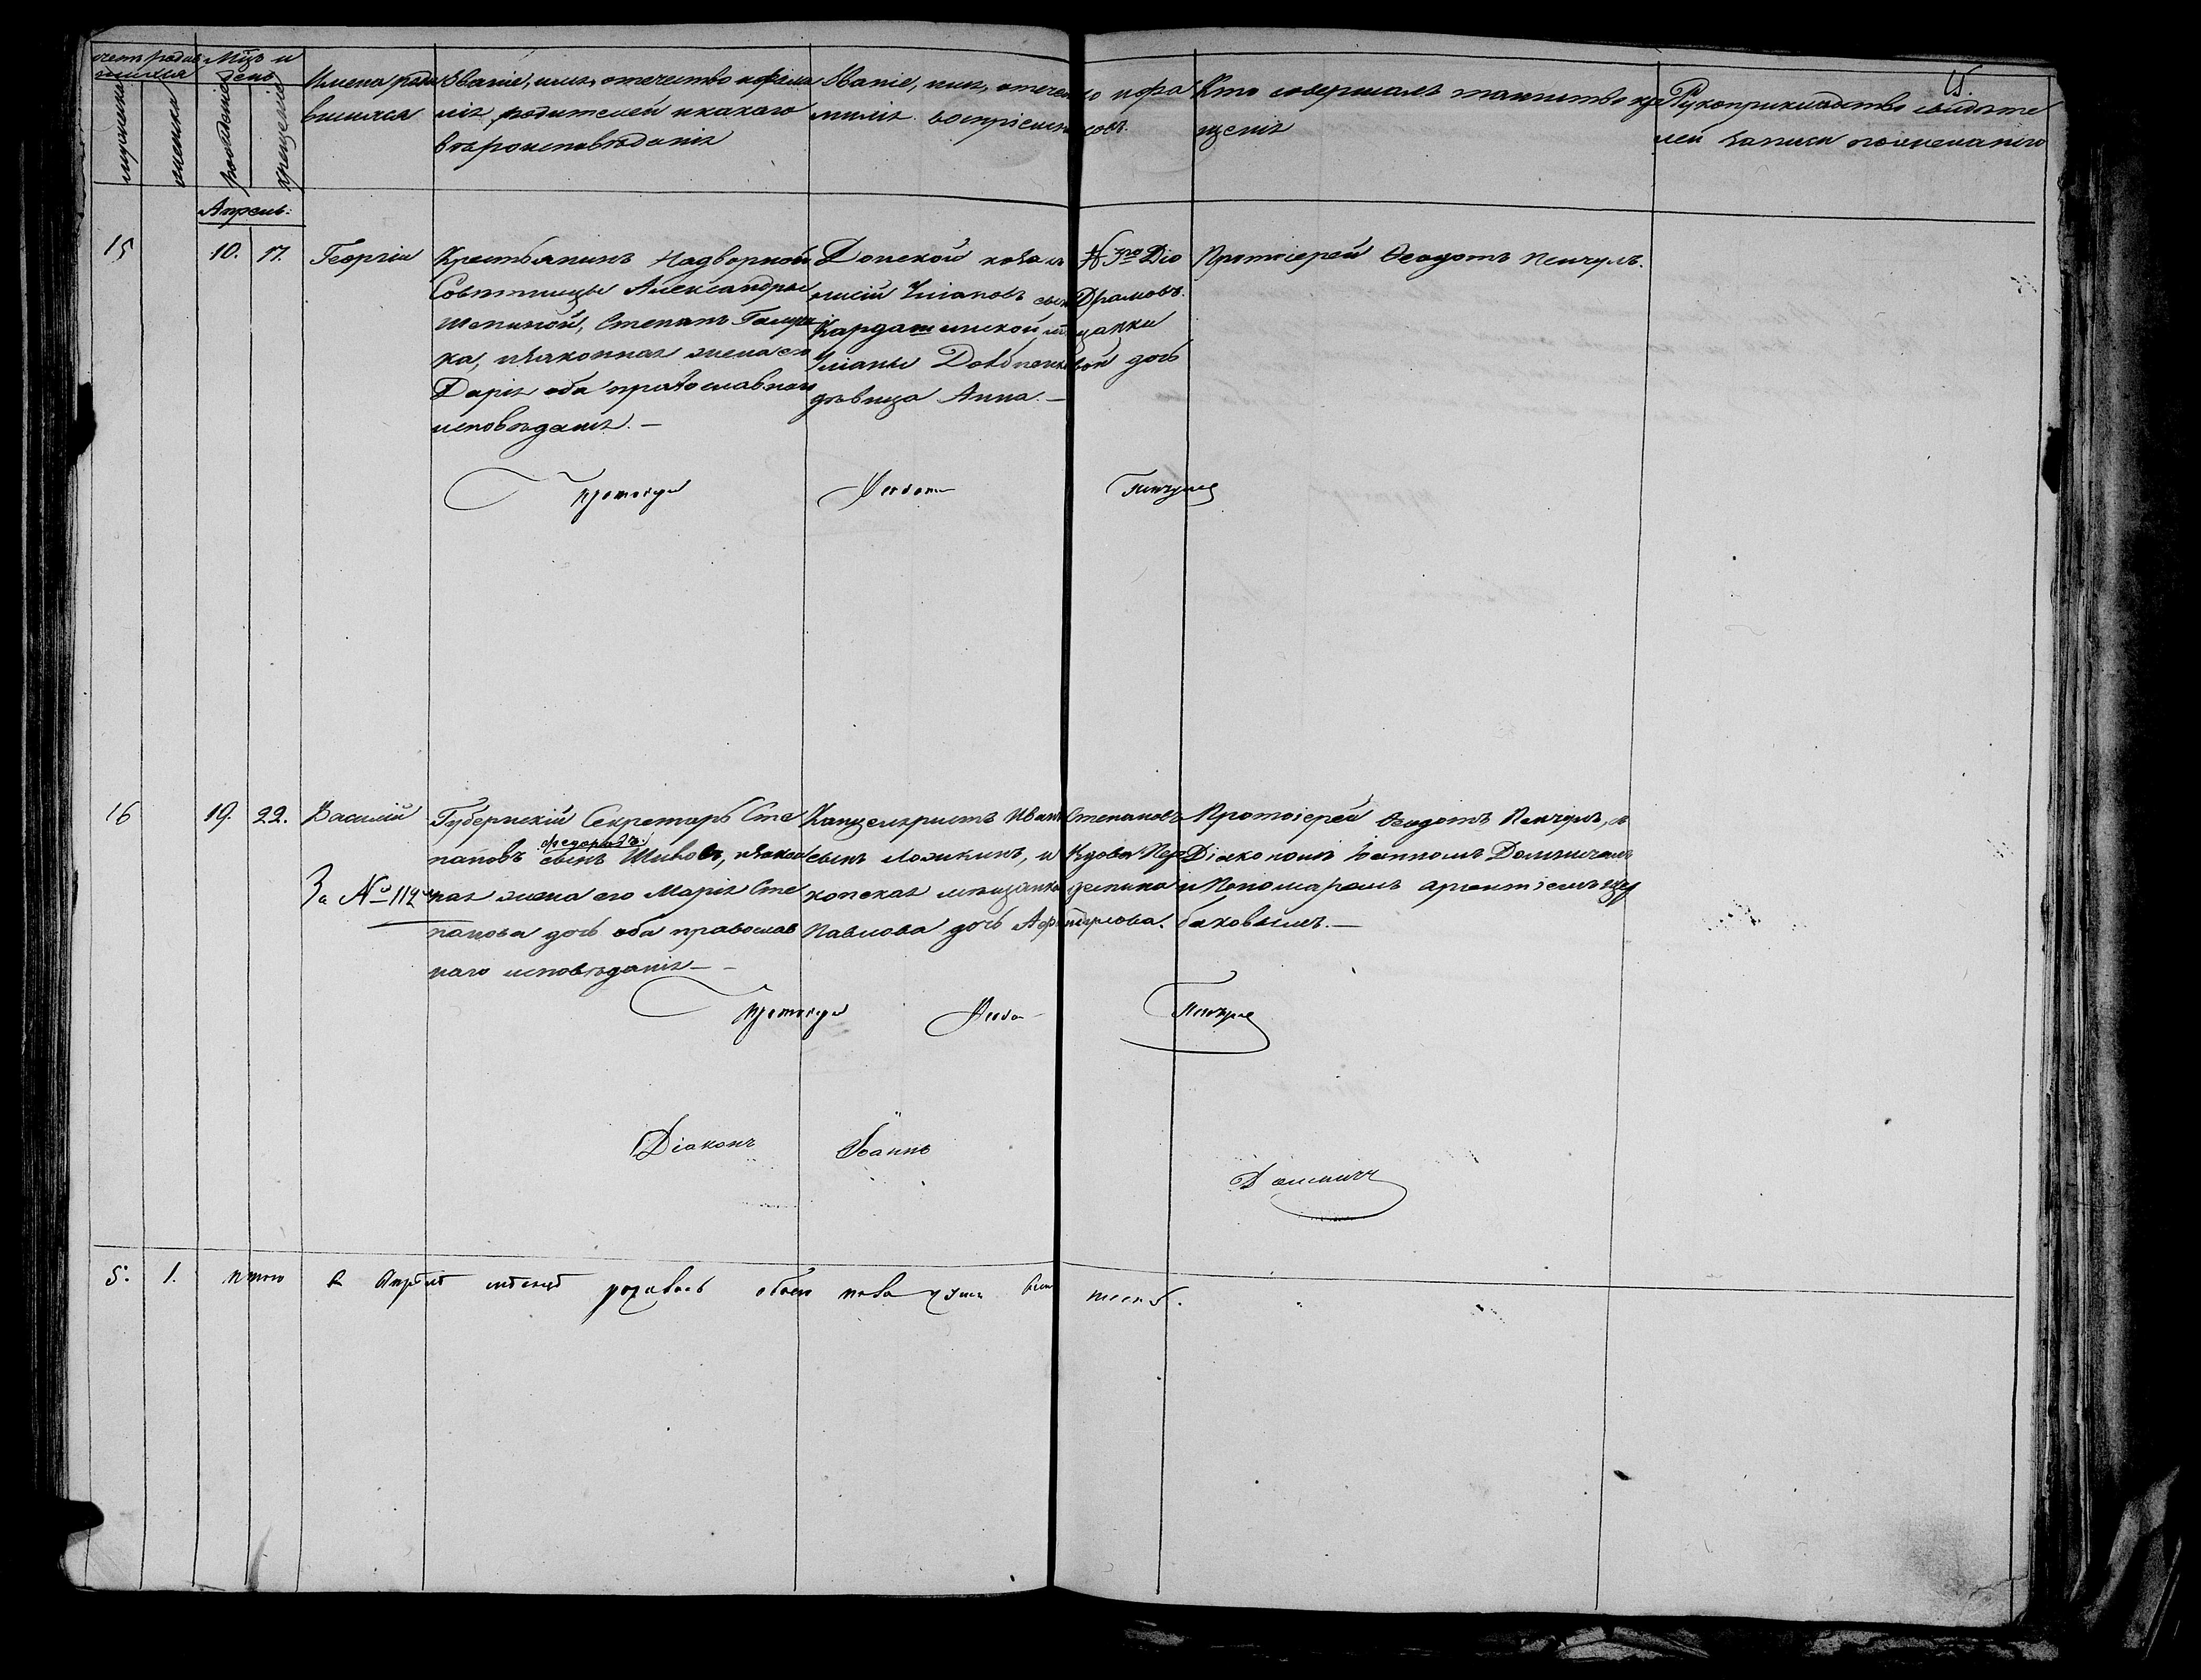 15.
счетъ родив Мѣц и
шихся день
мужеска
женска
рожденіе
крещеніе
Имена роди
вшихся
Званіе, имя, отечество и фами
лія родителей и какаго
вѣроисповѣданія
Званіе, имя, отечество и фа
милія воспріемниковъ.
Кто совершалъ таинство кре
щенія
Рукоприкладство свидѣте
лей записи по желанію
Апрель:
15 10. 17. Георгій
Крестьянинъ Надворной
Совѣтницы Александры
Степанъ
ка, и законная жена его
Дарія оба православнаго
исповѣданія. —
Донской козакъ Дио
нисій сынъ Драмовъ.
мѣщанки
дочь
дѣвица Анна. —
Протоіерей Ѳеодотъ Пенчулъ.
Протоіерей Ѳеодотъ Пенчулъ
16 19. 22. Василій
За № 112
Губернскій Секретарь Сте
панъ Федоровъ
сынъ Шиковъ, и закон
ная жена его Марія Сте
панова дочь оба православ
наго исповѣданія —
Канцеляристъ Иванъ Степановъ
сынъ Ложикинъ, и вдова Пере
копская мѣщанка
Павлова дочь
Протоіерей Ѳеодотъ Пенчулъ, съ
Діакономъ Іоанномъ
и Пономаремъ
баковымъ. —
Протоіерей Ѳеодотъ Пенчулъ
Діаконъ Іоаннъ
5. 1. Итого в Апрѣлѣ мѣсяцѣ родилось обоего пола шесть.